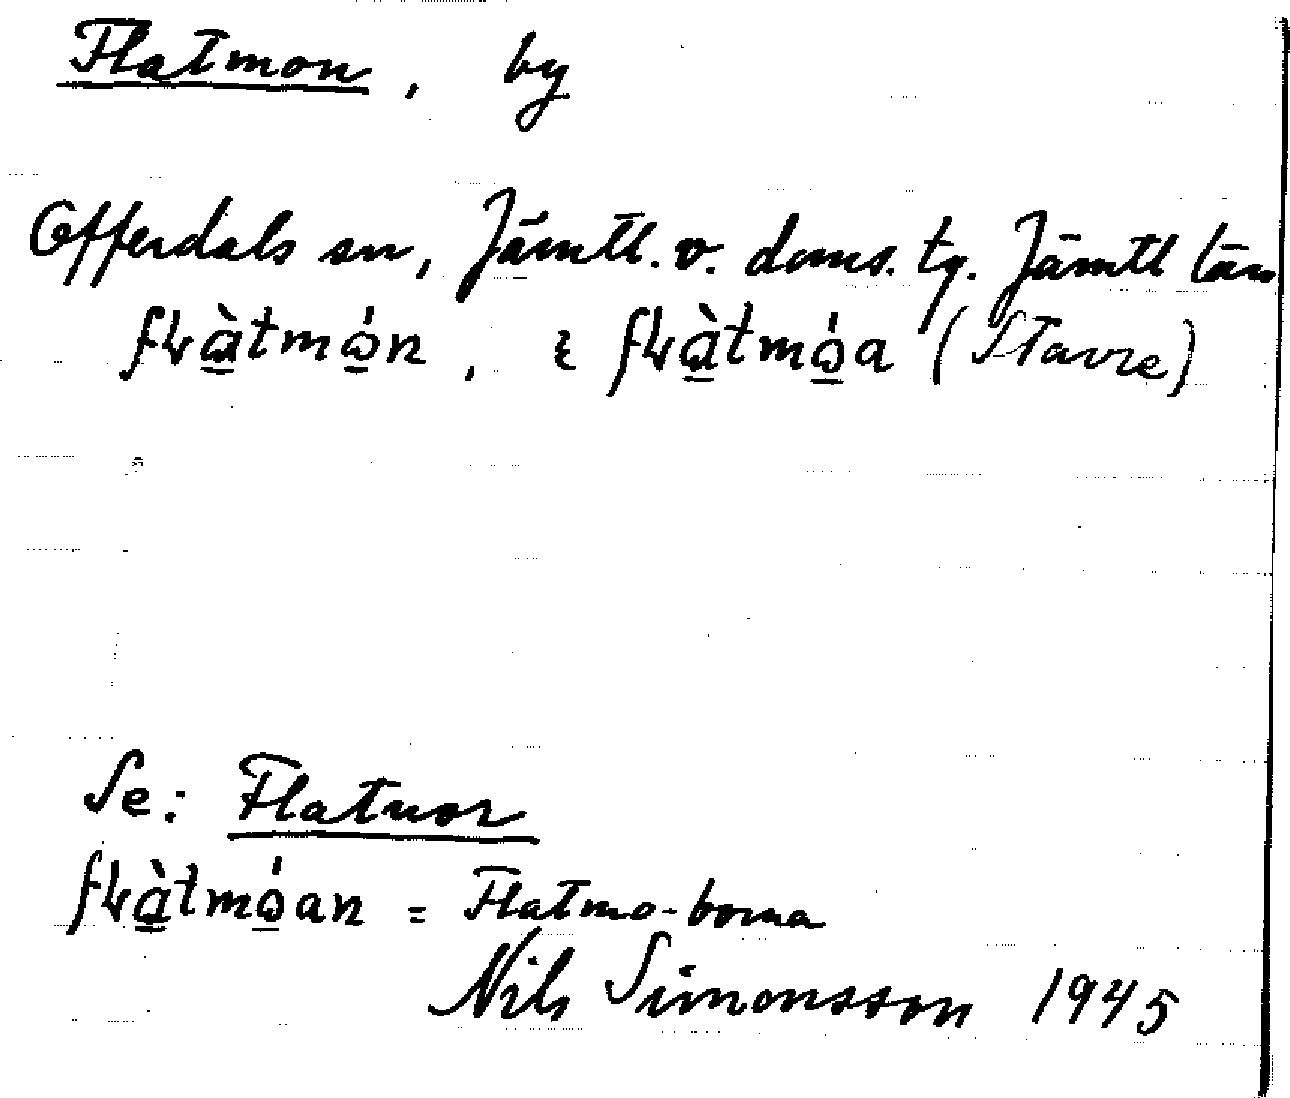 Flatmon, by
Offerdals sn, Jämtl. v. doms. tg. Jämtl län
Stavre)
Se: Flatnor
= Flatmo-borna
Nils Simonsson 1945